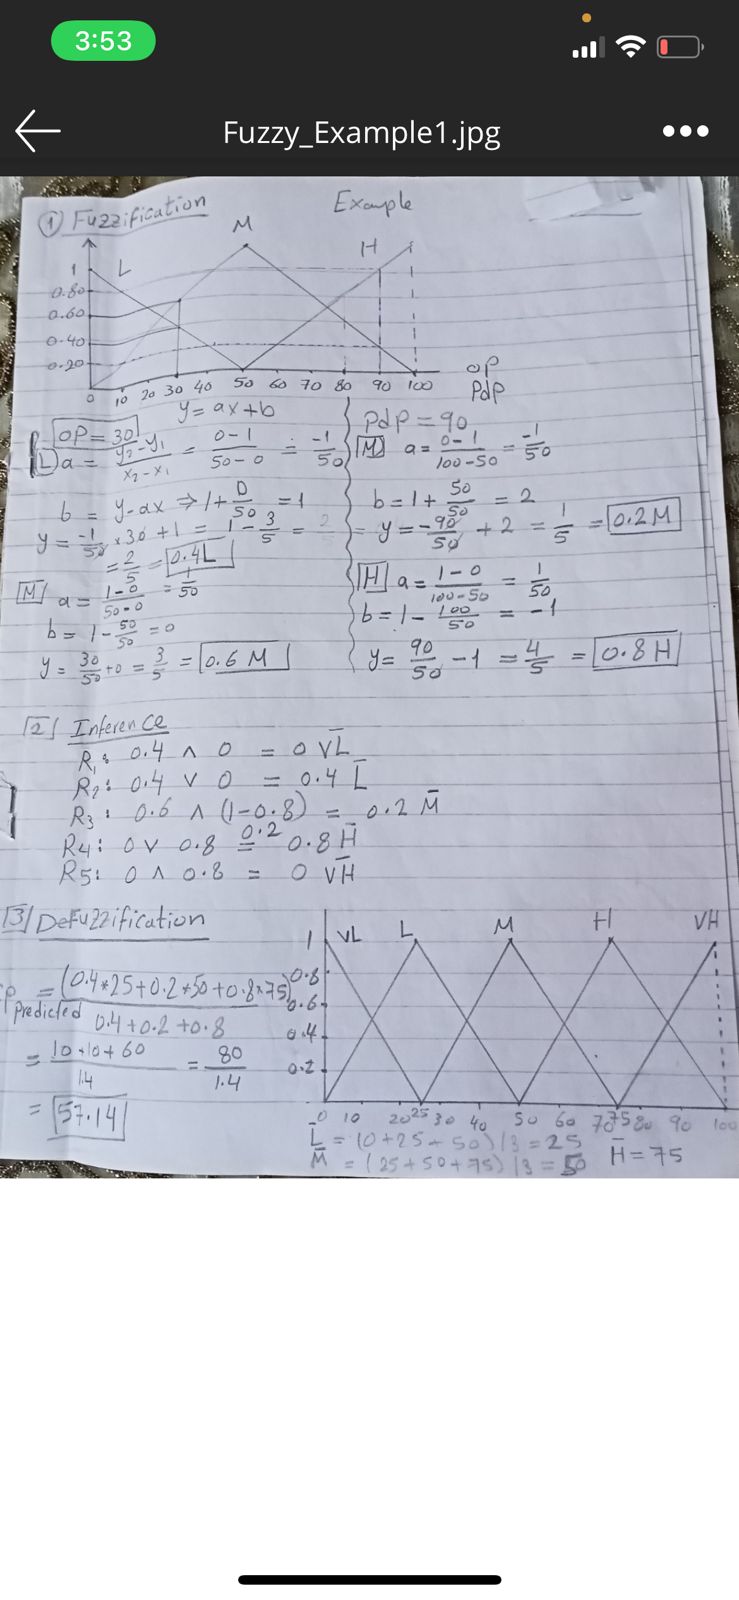 3:53
Fuzzy_Example1.jpg
① Fuzzification
Example
M
H
L
1
0.80
0.60
0.40
0.20
0 10 20 30 40 50 60 70 80 90 100
OP
PdP
y = ax+b
OP = 30
L a = y₂-y₁ / x₂-x₁ = 0-1 / 50-0 = -1/50
b = y-ax ⇒ 1+ 0/50 = 1
y = -1/50 × 30 + 1 = 1 - 3/5 =
= 2/5 = 0.4L
M a = 1-0 / 50-0 = 1/50
b = 1 - 50/50 = 0
y = 30/50 + 0 = 3/5 = 0.6 M
PdP = 90
M a = 0-1 / 100-50 = -1/50
b = 1 + 50/50 = 2
= y = -90/50 + 2 = 1/5 = 0.2 M
H a = 1-0 / 100-50 = 1/50
b = 1 - 100/50 = -1
y = 90/50 - 1 = 4/5 = 0.8 H
2 Inference
R₁: 0.4 ∧ 0 = 0 V̅L̅
R₂: 0.4 ∨ 0 = 0.4 L̅
R₃: 0.6 ∧ (1-0.8) = 0.2 M̅
0.2
R4: 0 ∨ 0.8 = 0.8 H̅
R5: 0 ∧ 0.8 = 0 V̅H̅
3 Defuzzification
Predicted = (0.4*25+0.2*50+0.8*75) / 0.4+0.2+0.8
= 10+10+60 / 1.4 = 80 / 1.4
= 57.14
VL L M H VH
1
0.8
0.6
0.4
0.2
0 10 20 25 30 40 50 60 70 75 80 90 100
L̅ = (0+25+50)/3 = 25
M̅ = (25+50+75)/3 = 50
H̅ = 75